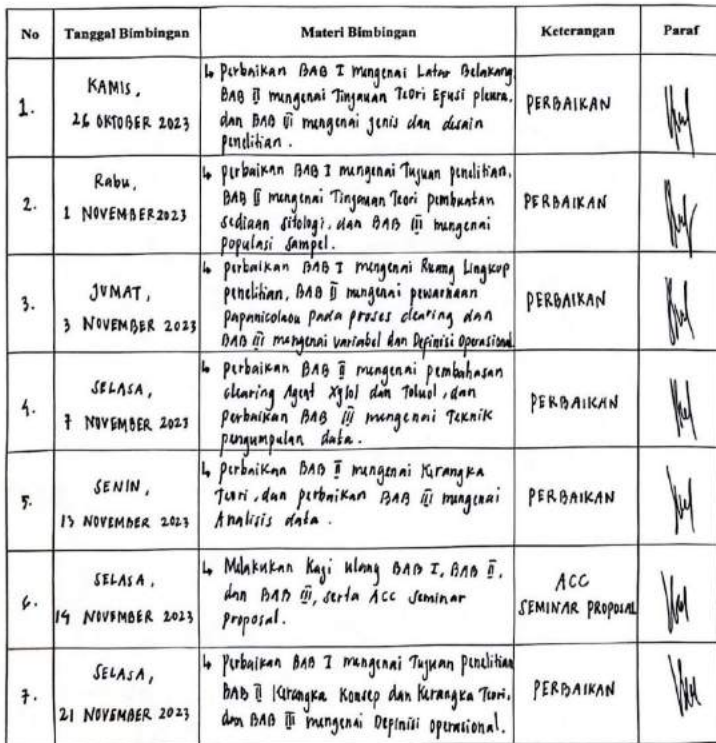 No Tanggal Bimbingan Materi Bimbingan Keterangan Paraf
1. KAMIS, 26 OKTOBER 2023
↳ Perbaikan BAB I mengenai Latar Belakang,
BAB II mengenai Tinjauan Teori Efusi pleura,
dan BAB III mengenai jenis dan desain
penelitian.
PERBAIKAN
2. Rabu, 1 NOVEMBER 2023
↳ perbaikan BAB I mengenai Tujuan penelitian,
BAB II mengenai Tinjauan Teori pembuatan
sediaan sitologi, dan BAB III mengenai
populasi sampel.
PERBAIKAN
3. JUMAT, 3 NOVEMBER 2023
↳ perbaikan BAB I mengenai Ruang Lingkup
penelitian, BAB II mengenai pewarnaan
Papanicolaou pada proses clearing dan
BAB III mengenai variabel dan Definisi Operasional
PERBAIKAN
4. SELASA, 7 NOVEMBER 2023
↳ perbaikan BAB II mengenai pembahasan
clearing Agent Xylol dan Toluol, dan
perbaikan BAB III mengenai Teknik
pengumpulan data.
PERBAIKAN
5. SENIN, 13 NOVEMBER 2023
↳ perbaikan BAB II mengenai Kerangka
Teori, dan perbaikan BAB III mengenai
Analisis data.
PERBAIKAN
6. SELASA, 14 NOVEMBER 2023
↳ Melakukan Kaji ulang BAB I, BAB II,
dan BAB III, serta Acc Seminar
proposal.
ACC
SEMINAR PROPOSAL
7. SELASA, 21 NOVEMBER 2023
↳ Perbaikan BAB I mengenai Tujuan Penelitian
BAB II Kerangka Konsep dan Kerangka Teori,
dan BAB III mengenai Definisi operasional.
PERBAIKAN